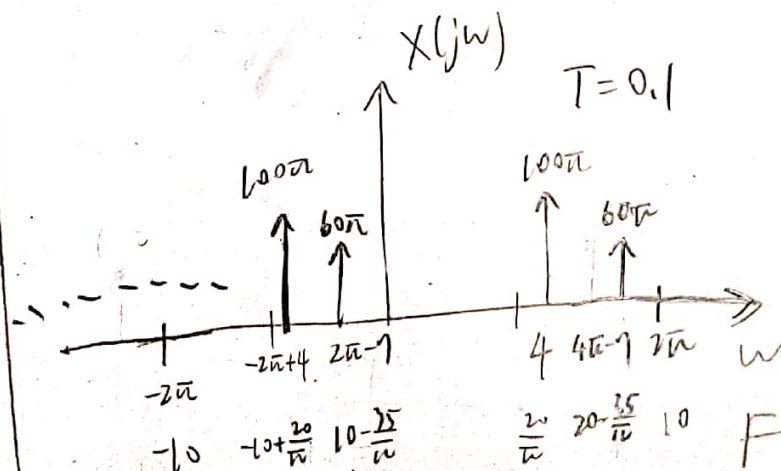 X(jw)
T=0.1
100π 60π 100π 60π
-2π -2π+4 2π-7 4 4π-7 2π w
-10 -10+20/π 10-35/π 20/π 20-35/π 10 F